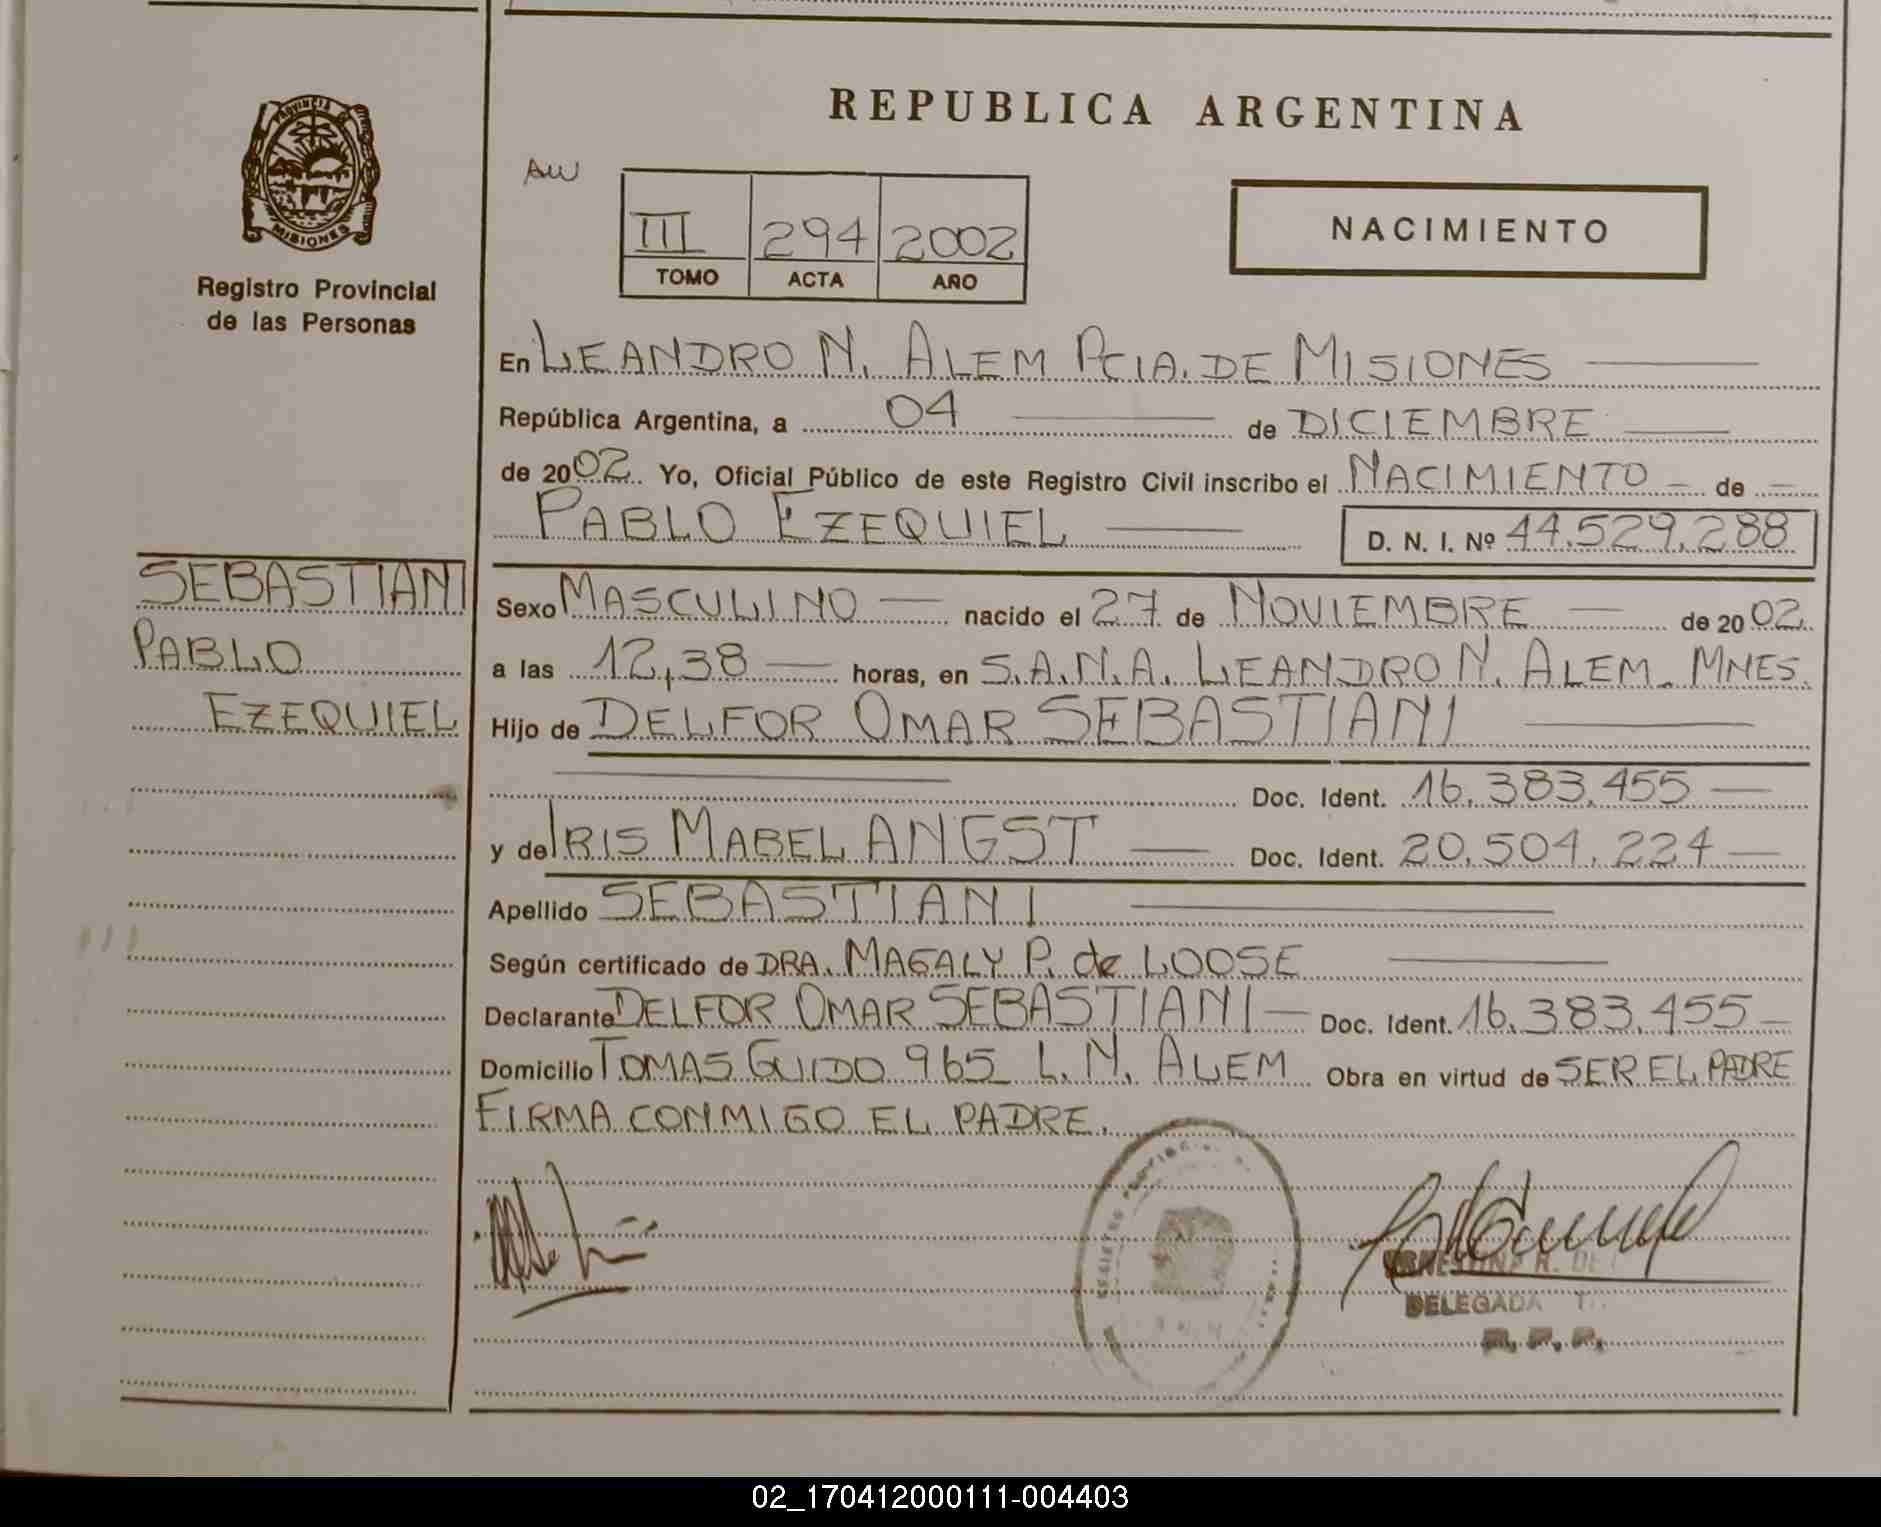 REPUBLICA ARGENTINA
AW
III 294 2002
TOMO ACTA AÑO
NACIMIENTO
PROVINCIA DE
MISIONES
Registro Provincial
de las Personas
SEBASTIANI
PABLO
EZEQUIEL
En LEANDRO N. ALEM PCIA. DE MISIONES
República Argentina, a 04 de DICIEMBRE
de 2002 Yo, Oficial Público de este Registro Civil inscribo el NACIMIENTO - de -
PABLO EZEQUIEL D. N. I. Nº 44.529.288
Sexo MASCULINO — nacido el 27 de NOVIEMBRE — de 2002
a las 12,38 — horas, en S.A.N.A. LEANDRO N. ALEM. MNES.
Hijo de DELFOR OMAR SEBASTIANI
Doc. Ident. 16.383.455 —
y de IRIS MABEL ANGST — Doc. Ident. 20.504.224 —
Apellido SEBASTIANI
Según certificado de DRA. MAGALY P. de LOOSE
Declarante DELFOR OMAR SEBASTIANI — Doc. Ident. 16.383.455 —
Domicilio TOMAS GUIDO 965 L. N. ALEM Obra en virtud de SER EL PADRE
FIRMA CONMIGO EL PADRE.
DELEGADA
R. P. P.
02_170412000111-004403